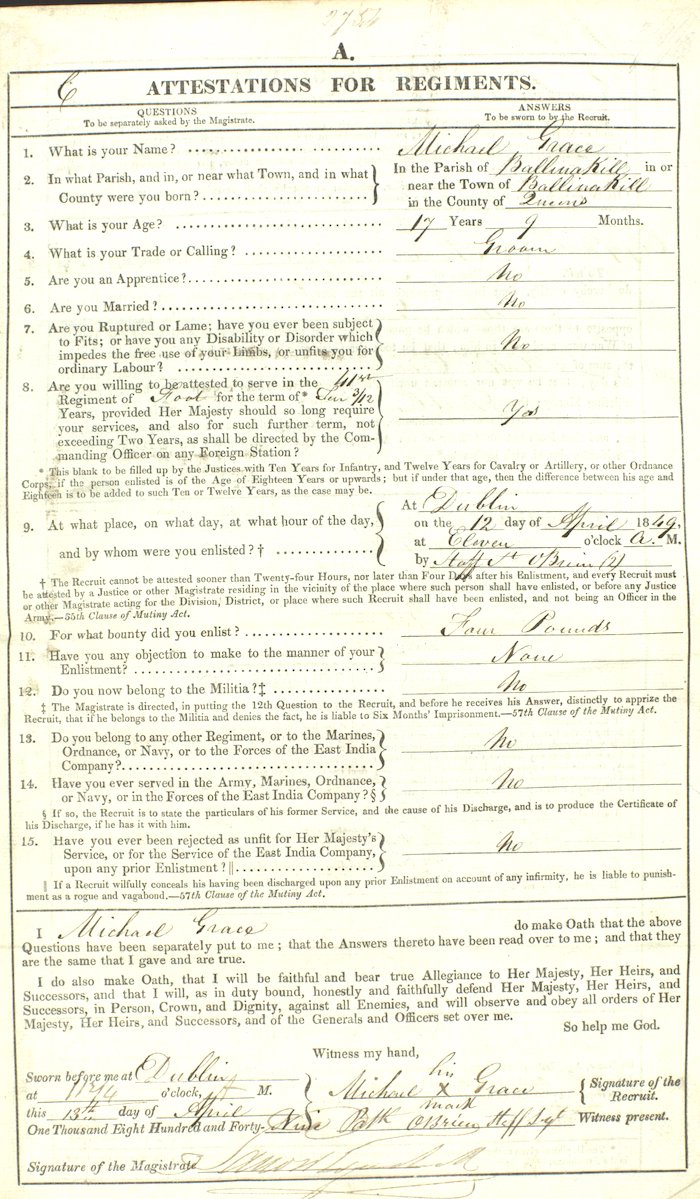 A.
C
ATTESTATIONS FOR REGIMENTS.
QUESTIONS
To be separately asked by the Magistrate.
ANSWERS
To be sworn to by the Recruit.
1. What is your Name? Michael Grace
2. In what Parish, and in, or near what Town, and in what
County were you born?
In the Parish of Ballinakill in or
near the Town of Ballinakill
in the County of Queens
3. What is your Age? 17 Years 9 Months.
4. What is your Trade or Calling? Groom
5. Are you an Apprentice? No
6. Are you Married? No
7. Are you Ruptured or Lame; have you ever been subject
to Fits; or have you any Disability or Disorder which
impedes the free use of your Limbs, or unfits you for
ordinary Labour?
No
8. Are you willing to be attested to serve in the 41st
Regiment of Foot for the term of* Ten 3/12
Years, provided Her Majesty should so long require
your services, and also for such further term, not
exceeding Two Years, as shall be directed by the Com-
manding Officer on any Foreign Station?
Yes
* This blank to be filled up by the Justices with Ten Years for Infantry, and Twelve Years for Cavalry or Artillery, or other Ordnance
Corps, if the person enlisted is of the Age of Eighteen Years or upwards; but if under that age, then the difference between his age and
Eighteen is to be added to such Ten or Twelve Years, as the case may be.
9. At what place, on what day, at what hour of the day,
and by whom were you enlisted? †
At Dublin
on the 12 day of April 1849,
at Eleven o'clock A. M.
by Staff St O'Brien (2)
† The Recruit cannot be attested sooner than Twenty-four Hours, nor later than Four Days after his Enlistment, and every Recruit must
be attested by a Justice or other Magistrate residing in the vicinity of the place where such person shall have enlisted, or before any Justice
or other Magistrate acting for the Division, District, or place where such Recruit shall have been enlisted, and not being an Officer in the
Army.—55th Clause of Mutiny Act.
10. For what bounty did you enlist? Four Pounds
11. Have you any objection to make to the manner of your
Enlistment?
None
12. Do you now belong to the Militia?‡ No
‡ The Magistrate is directed, in putting the 12th Question to the Recruit, and before he receives his Answer, distinctly to apprize the
Recruit, that if he belongs to the Militia and denies the fact, he is liable to Six Months' Imprisonment.—57th Clause of the Mutiny Act.
13. Do you belong to any other Regiment, or to the Marines,
Ordnance, or Navy, or to the Forces of the East India
Company?
No
14. Have you ever served in the Army, Marines, Ordnance,
or Navy, or in the Forces of the East India Company? §
No
§ If so, the Recruit is to state the particulars of his former Service, and the cause of his Discharge, and is to produce the Certificate of
his Discharge, if he has it with him.
15. Have you ever been rejected as unfit for Her Majesty's
Service, or for the Service of the East India Company,
upon any prior Enlistment? ||
No
|| If a Recruit wilfully conceals his having been discharged upon any prior Enlistment on account of any infirmity, he is liable to punish-
ment as a rogue and vagabond.—57th Clause of the Mutiny Act.
I Michael Grace do make Oath that the above
Questions have been separately put to me; that the Answers thereto have been read over to me; and that they
are the same that I gave and are true.
I do also make Oath, that I will be faithful and bear true Allegiance to Her Majesty, Her Heirs, and
Successors, and that I will, as in duty bound, honestly and faithfully defend Her Majesty, Her Heirs, and
Successors, in Person, Crown, and Dignity, against all Enemies, and will observe and obey all orders of Her
Majesty, Her Heirs, and Successors, and of the Generals and Officers set over me.
So help me God.
Witness my hand,
Sworn before me at Dublin
at o'clock, M.
this 13th day of April
One Thousand Eight Hundred and Forty-Nine
his
Michael X Grace
mark
Signature of the
Recruit.
Patk O'Brien Staff Sgt Witness present.
Signature of the Magistrate